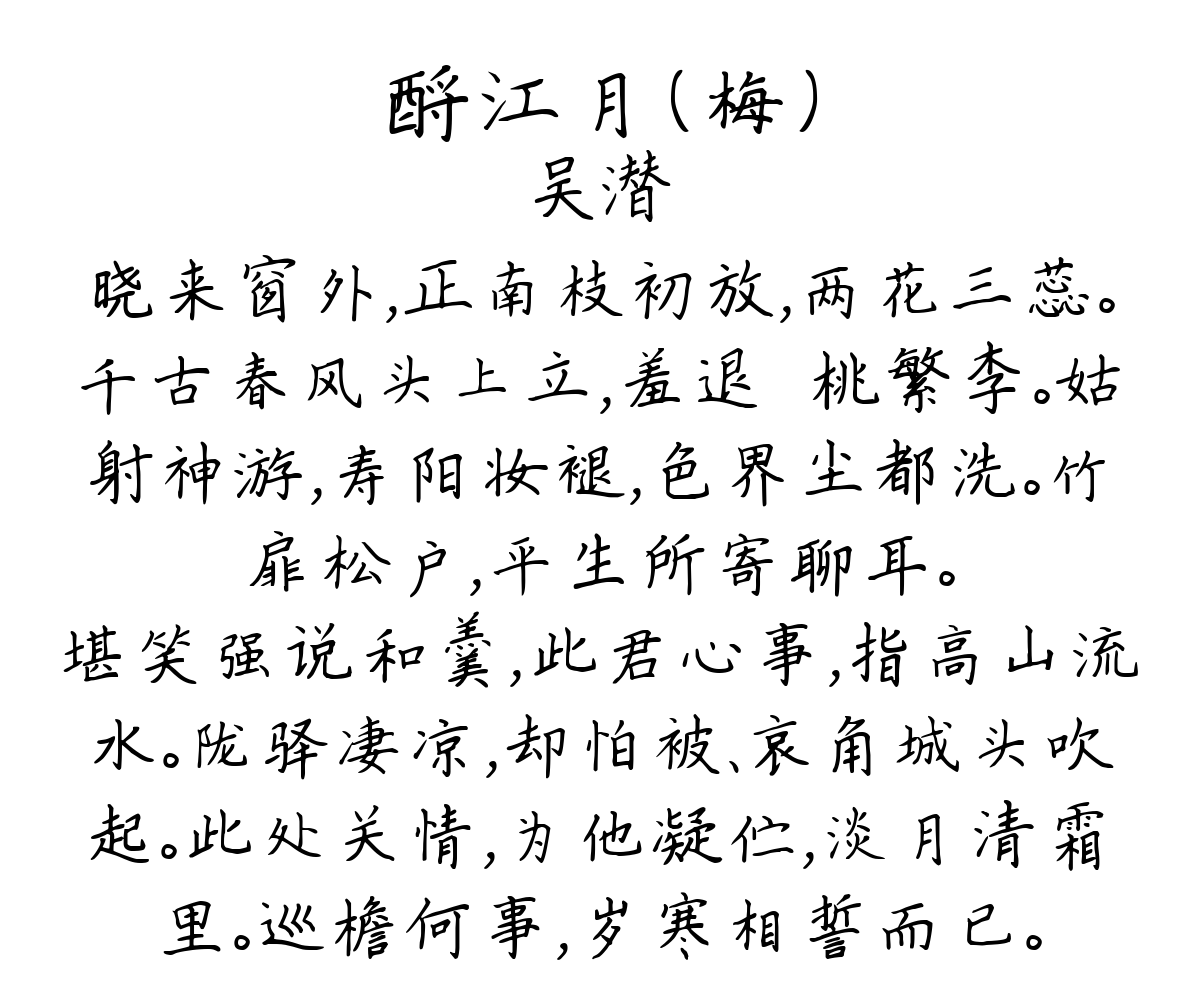 酹江月(梅)
吴潜
晓来窗外,正南枝初放,两花三蕊。
千古春风头上立,羞退 桃繁李。姑
射神游,寿阳妆褪,色界尘都洗。竹
扉松户,平生所寄聊耳。
堪笑强说和羹,此君心事,指高山流
水。陇驿凄凉,却怕被、哀角城头吹
起。此处关情,为他凝伫,淡月清霜
里。巡檐何事,岁寒相誓而已。